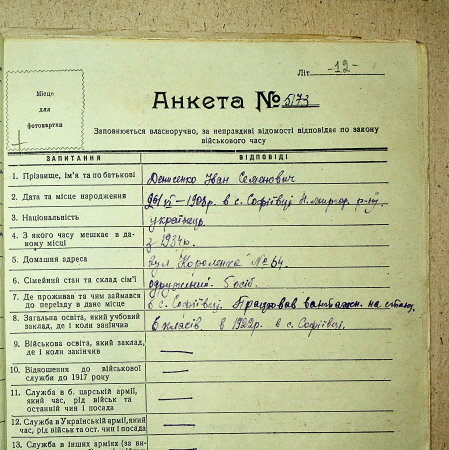 Літ. -12-
Місце
для
фотокартки
Анкета № 5173
Заповнюється власноручно, за неправдиві відомості відповідає по закону
військового часу
ЗАПИТАННЯ ВІДПОВІДІ
1. Прізвище, ім'я та по батькові Денисенко Іван Семенович
2. Дата та місце народження VI - 1908р. в с. Софіївці р-ну
3. Національність українець.
4. З якого часу мешкає в да-
ному місці з 1934р.
5. Домашня адреса вул. Короленка № 64.
6. Сімейний стан та склад сім'ї одружений. 5 осіб.
7. Де проживав та чим займався
до переїзду в дане місце в с. Софіївці. Працював на
8. Загальна освіта, який учбовий
заклад, де і коли закінчив 6 класів, в 1922р. в с. Софіївці.
9. Військова освіта, який заклад,
де і коли закінчив —
10. Відношення до військової
служби до 1917 року —
11. Служба в б. царській армії,
який час, рід військ та
останній чин і посада —
12. Служба в Українській армії, який
час, рід військ та ост. чин і посада —
13. Служба в інших арміях (за ви- —